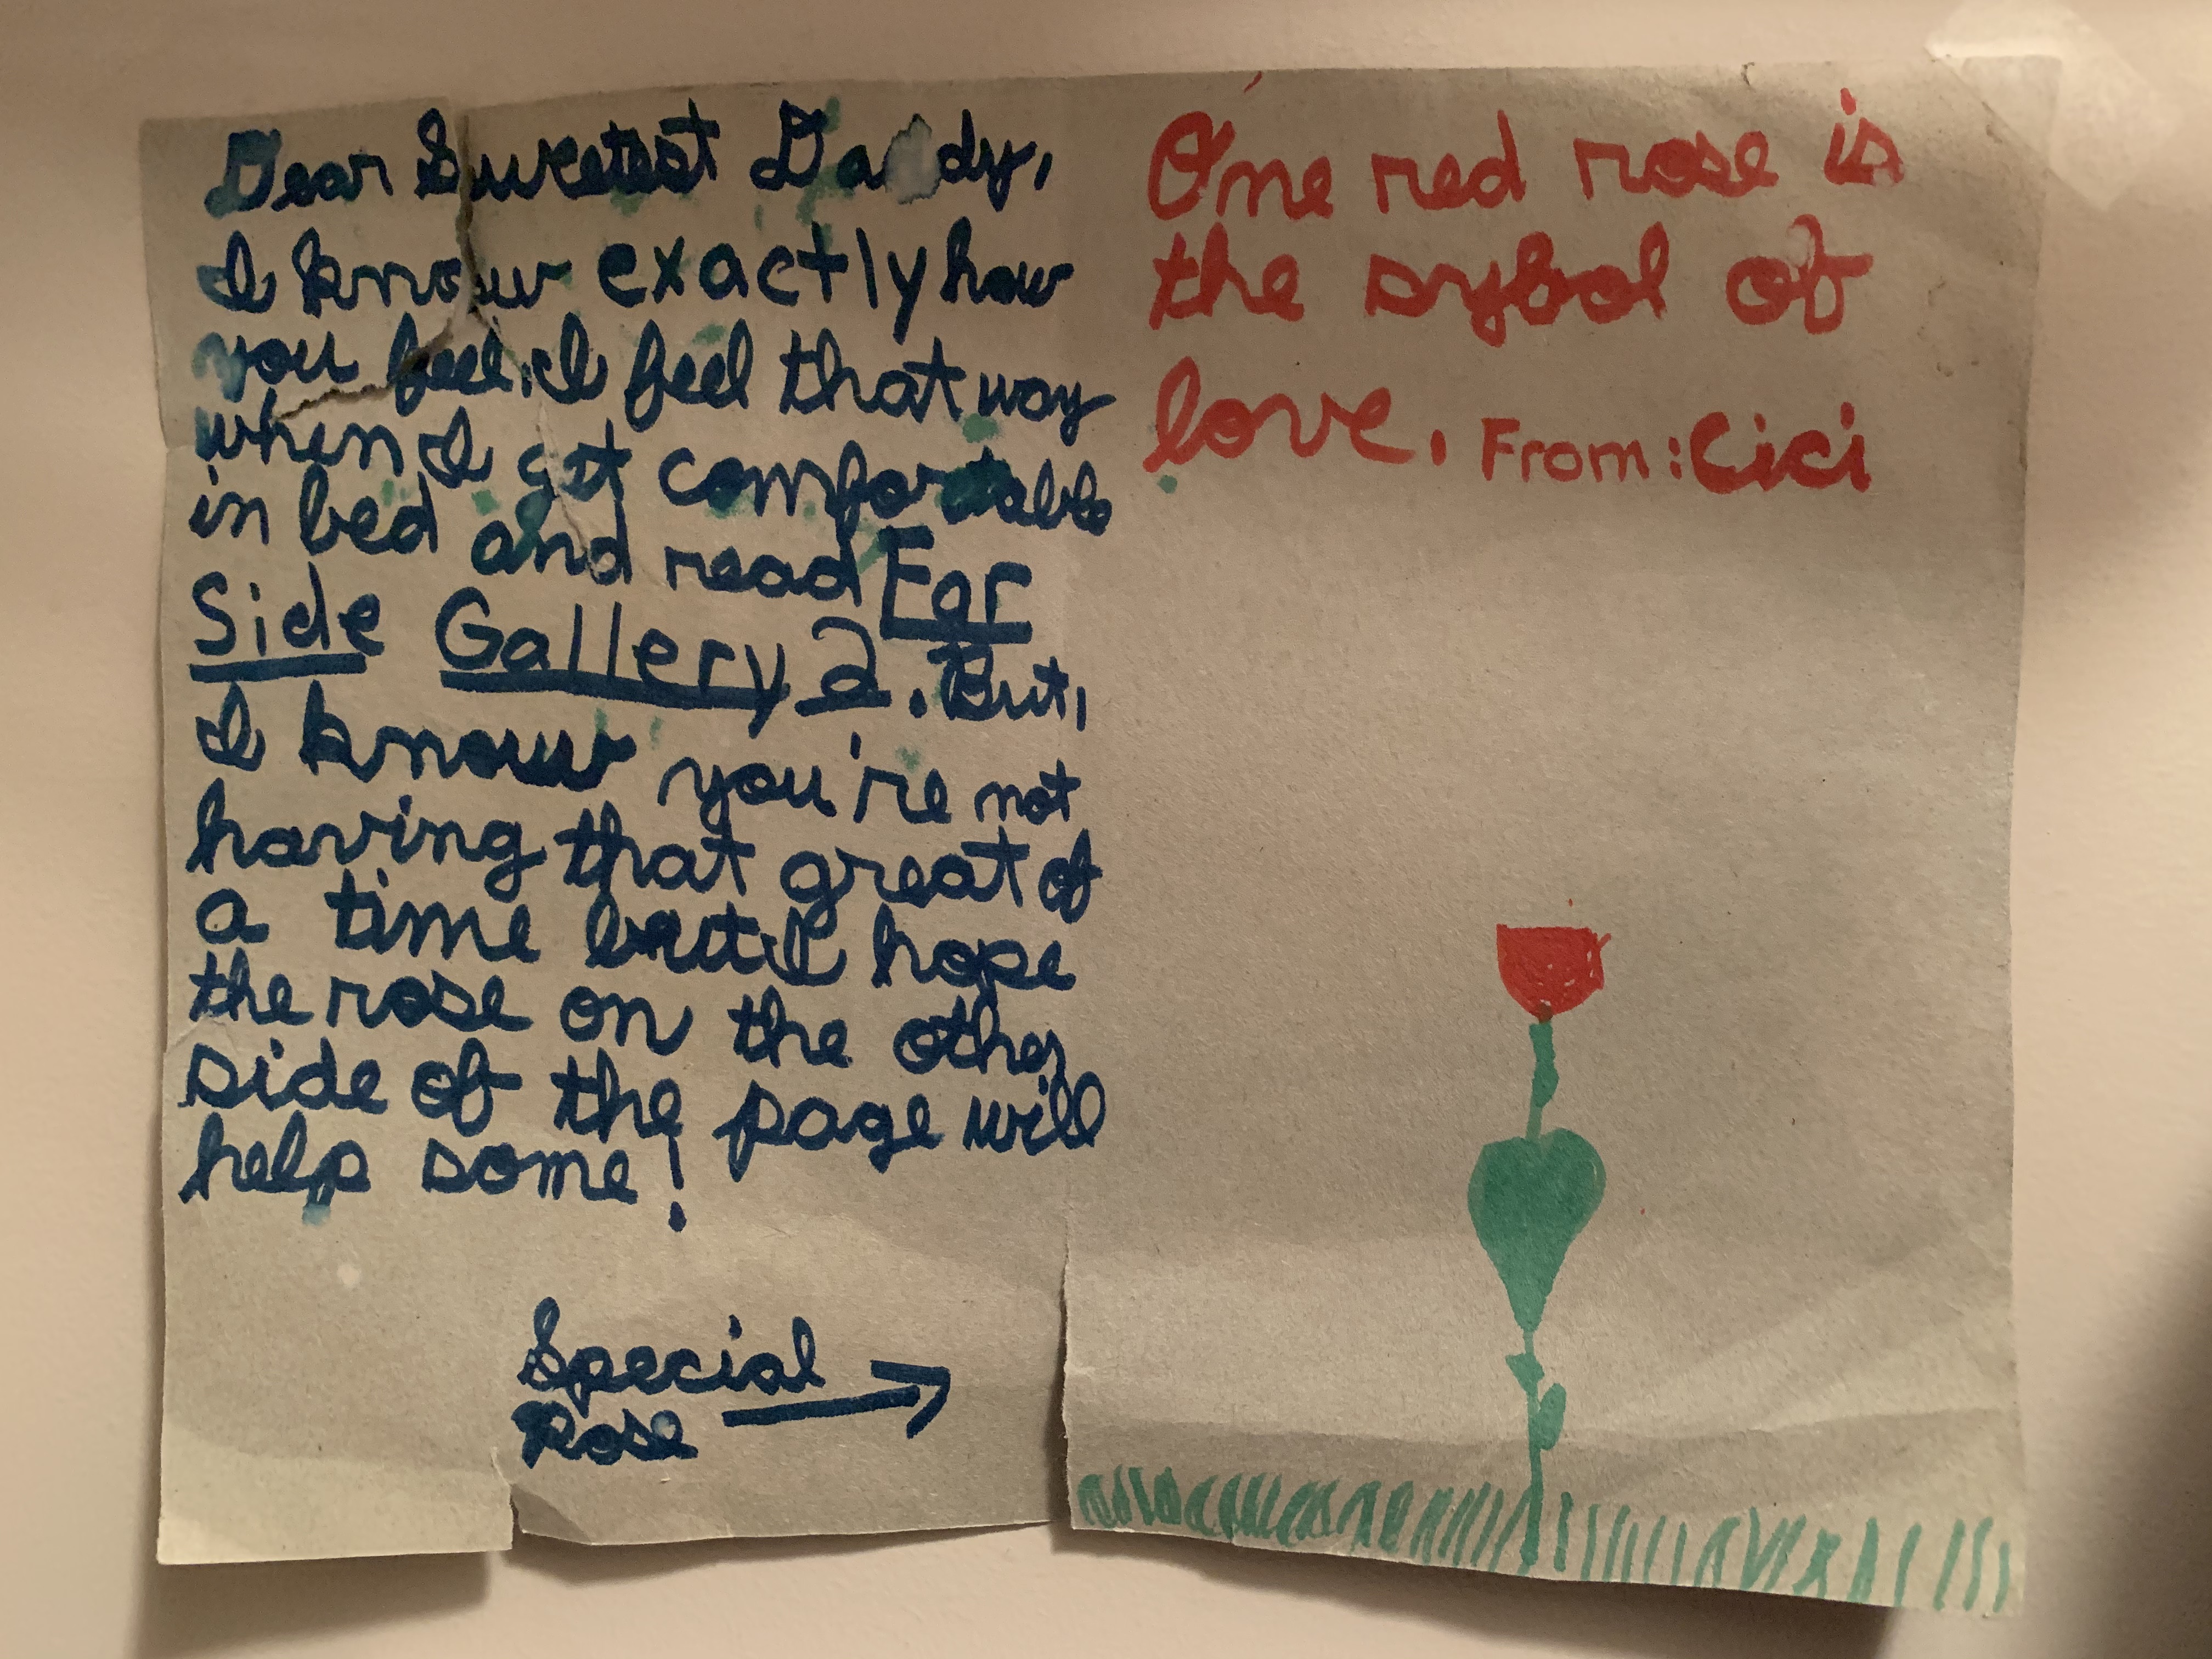 Dear Sweetest Daddy,
I know exactly how
you feel. I feel that way
when I get comfortable
in bed and read Far
Side Gallery 2. But,
I know you're not
having that great of
a time but I hope
the rose on the other
side of the page will
help some!
Special
Rose
One red rose is
the sybol of
love. From: Cici